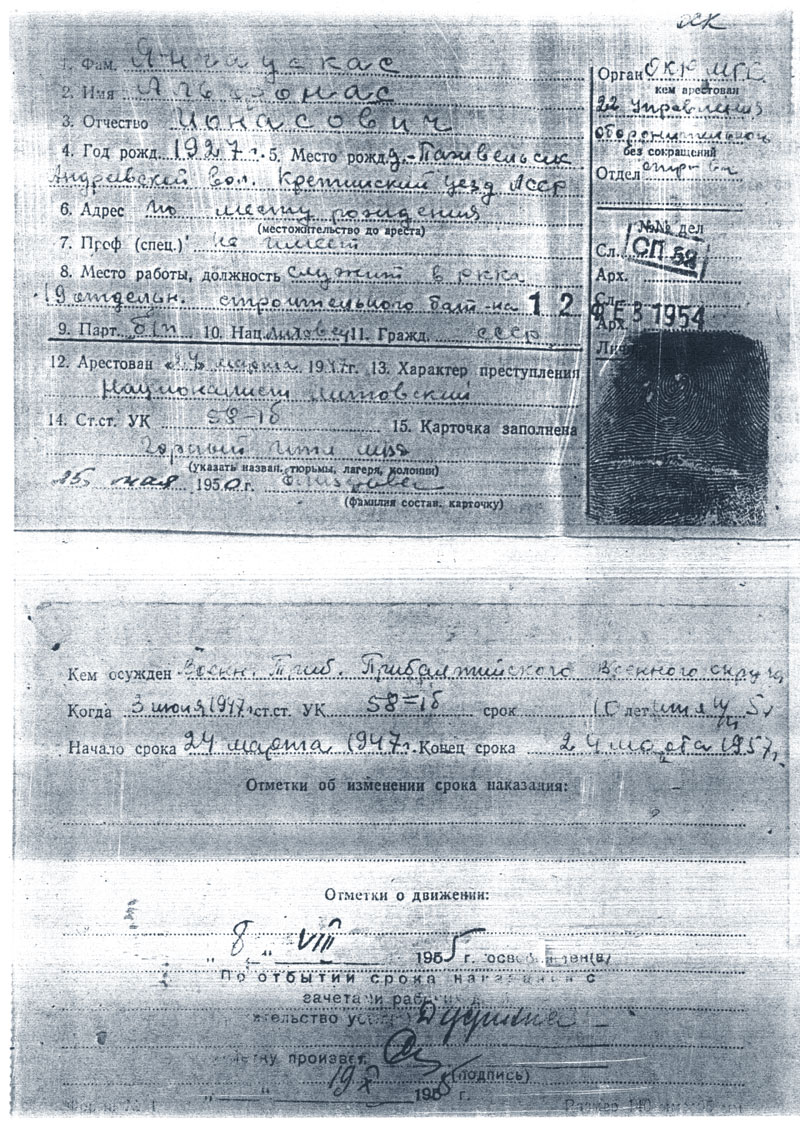 ОСК
1. Фам. Янгаускас
2. Имя Альфонас
3. Отчество Ионасович
4. Год рожд. 1927 г. 5. Место рожд. д. Пажвельсик
Андреевской вол. Кретингский уезд ЛССР
6. Адрес по месту рождения
(местожительство до ареста)
7. Проф (спец.) не имеет
8. Место работы, должность служит в РККА
19 отдельн. строительного бат-на
9. Парт. б/п 10. Нац. литовец 11. Гражд. СССР
12. Арестован „24“ марта 1947г. 13. Характер преступления
Националист литовский
14. Ст.ст. УК 58-1б 15. Карточка заполнена
Горный ИТЛ МВД
(указать назван. тюрьмы, лагеря, колонии)
25 мая 1950 г.
(фамилия состав. карточку)
Орган ОКР МГБ
кем арестован
22 управления
оборонительного
без сокращений
Отдел строй-ва
№№ дел
Сл.
СП 52
Арх.
Сл.
12 ФЕВ 1954
Арх.
Кем осужден Военн. Триб. Прибалтийского военного округа
Когда 3 июня 1947г. ст.ст. УК 58-1б срок 10 лет итл п/п 5 л
Начало срока 24 марта 1947г. Конец срока 24 марта 1957г.
Отметки об изменении срока наказания:
Отметки о движении:
„ 8 “ VIII 1955 г. освобожден(а)
По отбытии срока наказания с
зачетами раб.
производ.
(подпись)
19 X 1955 г.